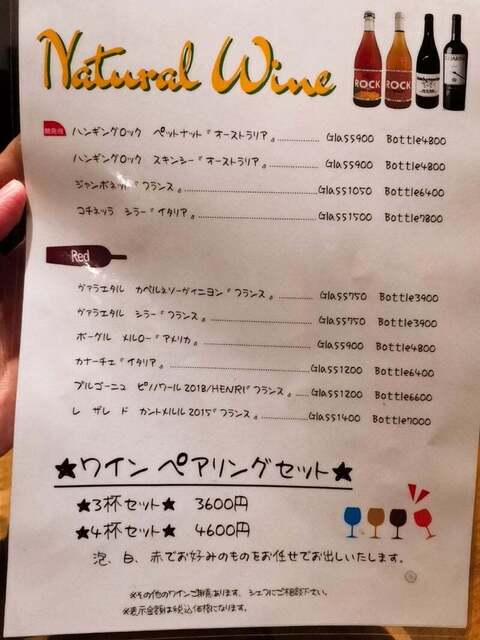 Natural Wine
ROCK
ROCK
微発泡
ハンギングロック ペットナット『オーストラリア』 Glass900 Bottle4800
ハンギングロック スキンシー『オーストラリア』 Glass900 Bottle4800
ジャンボネット『フランス』 Glass1050 Bottle6400
コチネッラ シラー『イタリア』 Glass1500 Bottle7800
Red
ヴァラエタル カベルネソーヴィニヨン『フランス』 Glass750 Bottle3900
ヴァラエタル シラー『フランス』 Glass750 Bottle3900
ボーグル メルロー『アメリカ』 Glass900 Bottle4800
カナーチェ『イタリア』 Glass1200 Bottle6400
ブルゴーニュ ピノノワール2018/HENRI『フランス』 Glass1200 Bottle6600
レ ザレ ド カントメルル2015『フランス』 Glass1400 Bottle7000
★ワイン ペアリングセット★
★3杯セット★ 3600円
★4杯セット★ 4600円
泡、白、赤でお好みのものをお任せでお出しいたします。
※その他のワインご用意あります、シェフにご相談下さい。
※表示金額は税込価格になります。